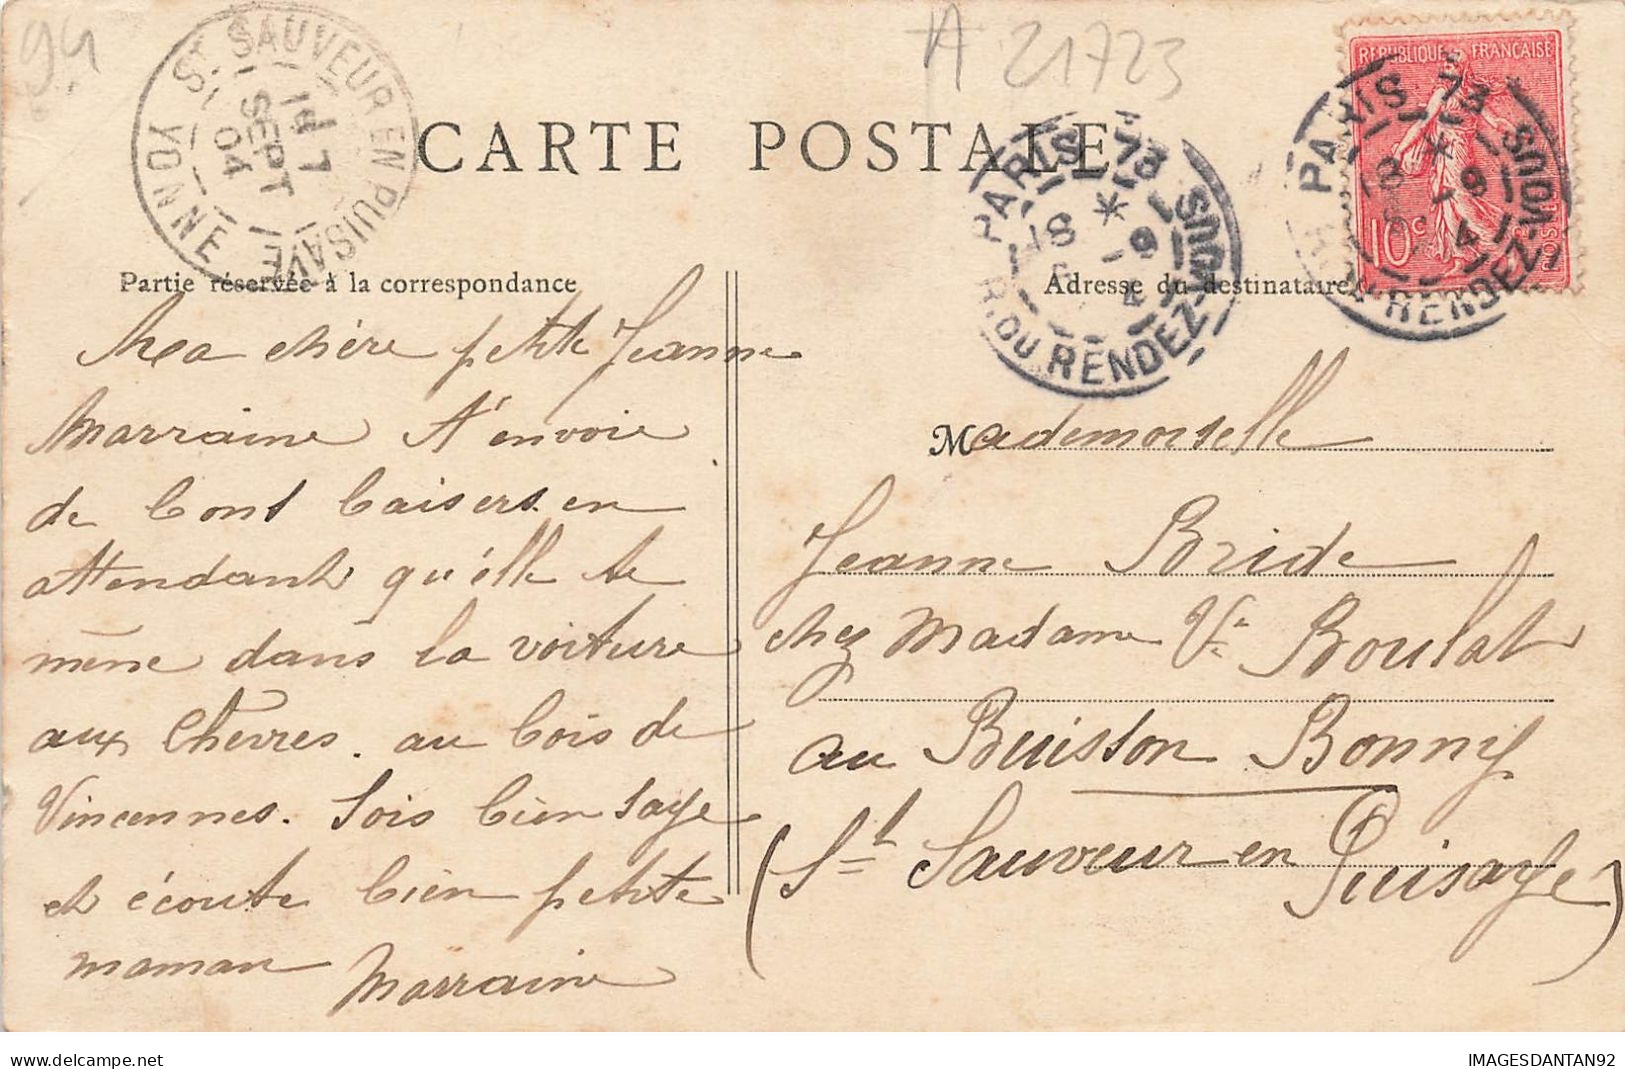 94
A 21723
ST SAUVEUR EN PUISAYE
YONNE
SEPT
04
CARTE POSTALE
PARIS 73
R. DU RENDEZ-VOUS
PARIS 73
R. DU RENDEZ-VOUS
REPUBLIQUE FRANCAISE
10c
Partie réservée à la correspondance
Adresse du destinataire
Ma chère petite Jeanne
Marraine t'envoie
de bons baisers en
attendant qu'elle te
mène dans la voiture
aux Chèvres. au bois de
Vincennes. Sois bien sage
et écoute bien petite
maman Marraine
Mademoiselle
Jeanne Bride
chez Madame Ve Boulat
au Buisson Bonny
(St Sauveur en Puisaye)
IMAGESDANTAN92
delcampe.net